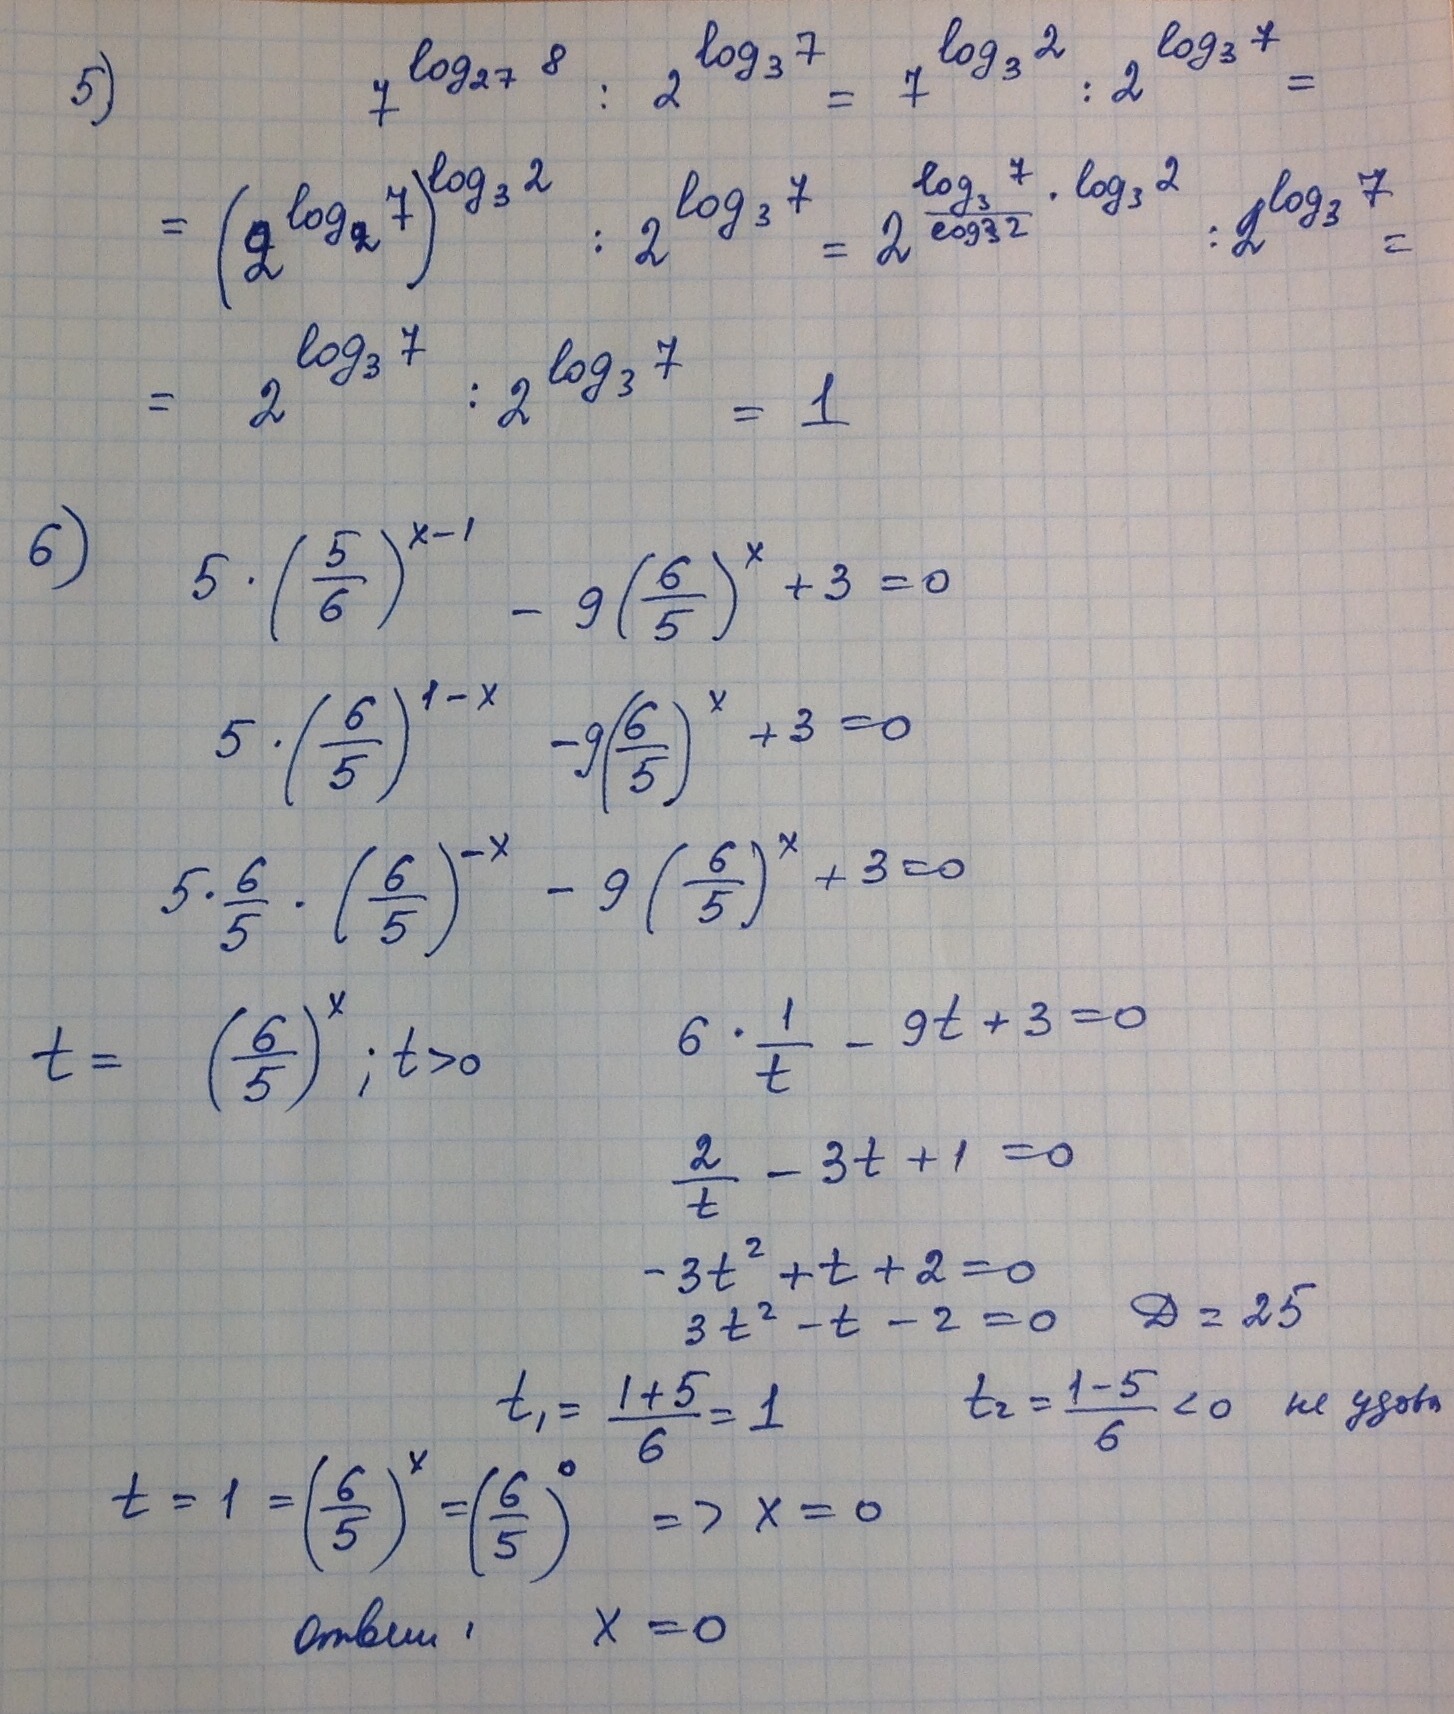 5) 7^{log_{27} 8} : 2^{log_3 7} = 7^{log_3 2} : 2^{log_3 7} =
= (2^{log_2 7})^{log_3 2} : 2^{log_3 7} = 2^{\frac{log_3 7}{log_3 2} · log_3 2} : 2^{log_3 7} =
= 2^{log_3 7} : 2^{log_3 7} = 1
6) 5 · (5/6)^{x-1} - 9(6/5)^x + 3 = 0
5 · (6/5)^{1-x} - 9(6/5)^x + 3 = 0
5 · 6/5 · (6/5)^{-x} - 9(6/5)^x + 3 = 0
t = (6/5)^x ; t>0 6 · 1/t - 9t + 3 = 0
2/t - 3t + 1 = 0
-3t² + t + 2 = 0
3t² - t - 2 = 0 D = 25
t₁ = (1+5)/6 = 1 t₂ = (1-5)/6 < 0 не удовл
t = 1 = (6/5)^x = (6/5)^0 => x = 0
ответ: x = 0